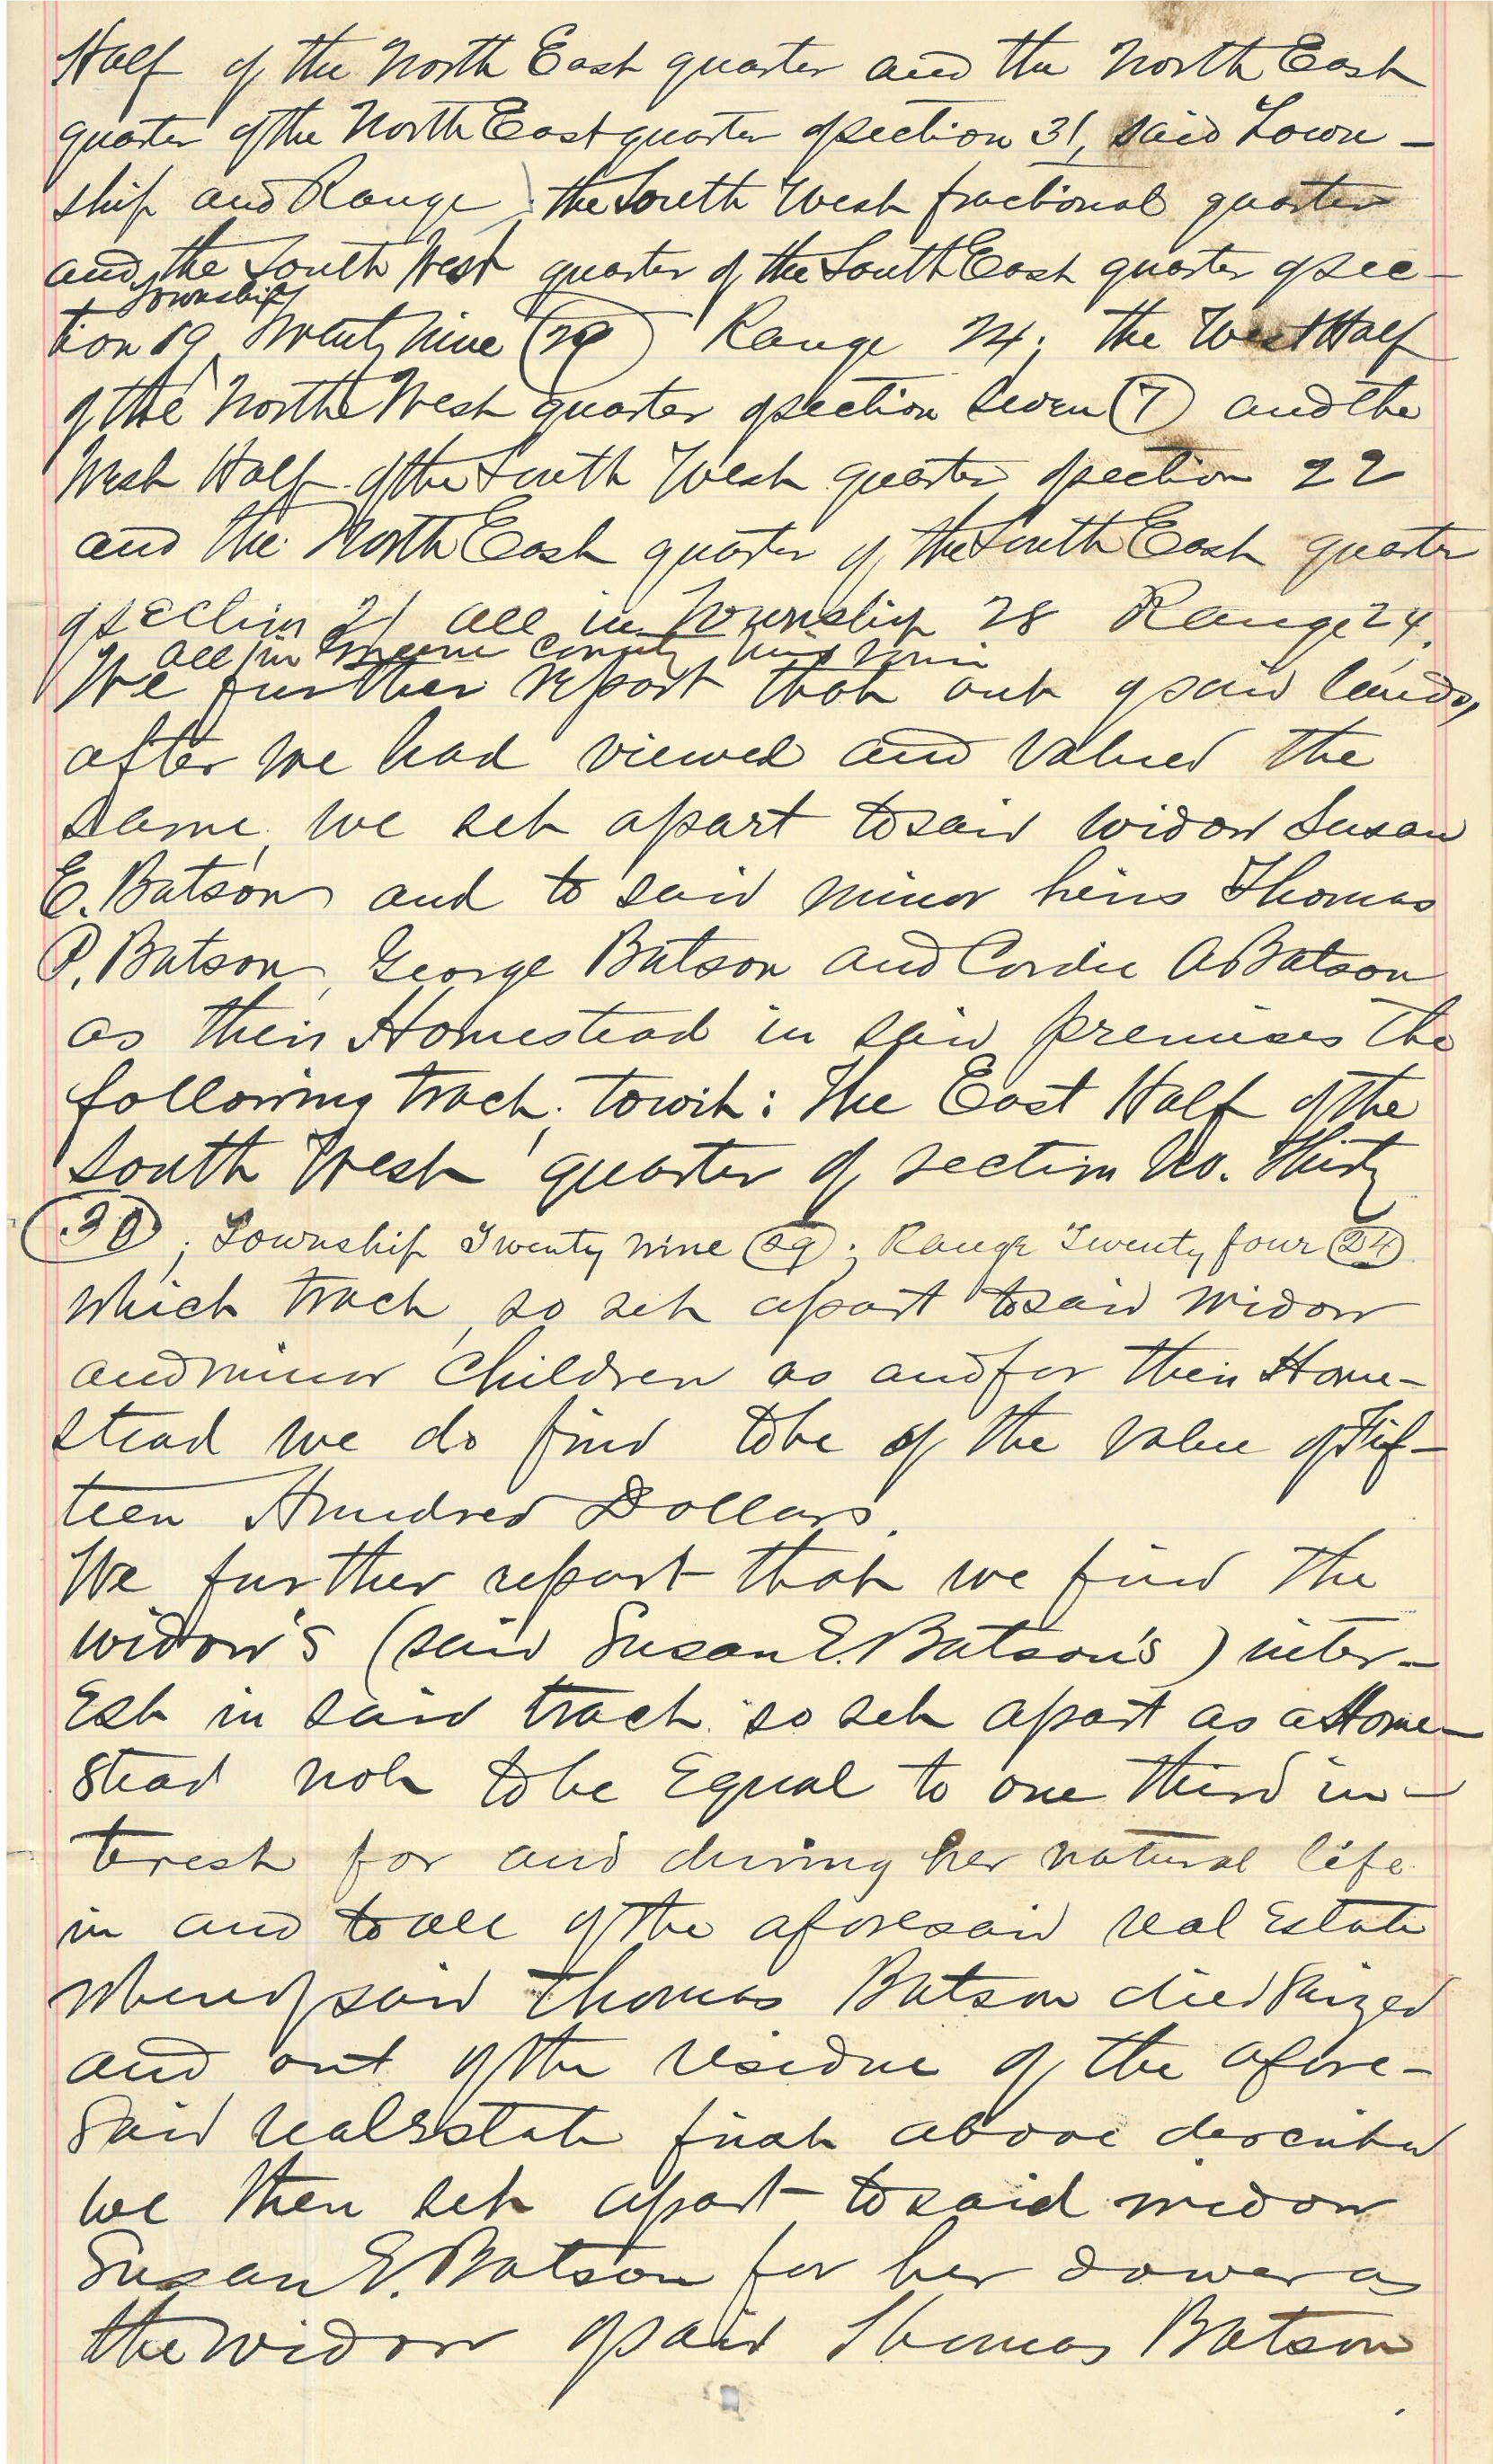 Half of the North East quarter and the North East
quarter of the North East quarter of section 31, said Town-
ship and Range; the South West fractional quarter
and the South West quarter of the South East quarter of sec-
Township
tion 19 Twenty nine (29) Range 24; the West Half
of the North West quarter of section Seven (7) and the
West Half of the South West quarter of section 22
and the North East quarter of the South East quarter
of section 21 all in Township 28 Range 24.
All in Greene County Missouri
We further report that out of said lands,
after we had viewed and valued the
same, we set apart to said widow Susan
E. Batson and to said minor heirs Thomas
P. Batson, George Batson and Cordie A Batson
as their Homestead in said premises the
following tract, towit: The East Half of the
South West quarter of section No. Thirty
(30); Township Twenty nine (29); Range Twenty four (24)
which tract, so set apart to said widow
and minor children as and for their Home-
stead we do find to be of the value of Fif-
teen Hundred Dollars.
We further report that we find the
widow's (said Susan E. Batson's) inter-
Est in said tract so set apart as a Home-
stead not to be Equal to one third in-
terest for and during her natural life
in and to all of the aforesaid real Estate
whereof said Thomas Batson died Seized
and out of the residue of the afore-
Said real Estate first above described
we then set apart to said widow
Susan E. Batson for her dower as
the widow of said Thomas Batson